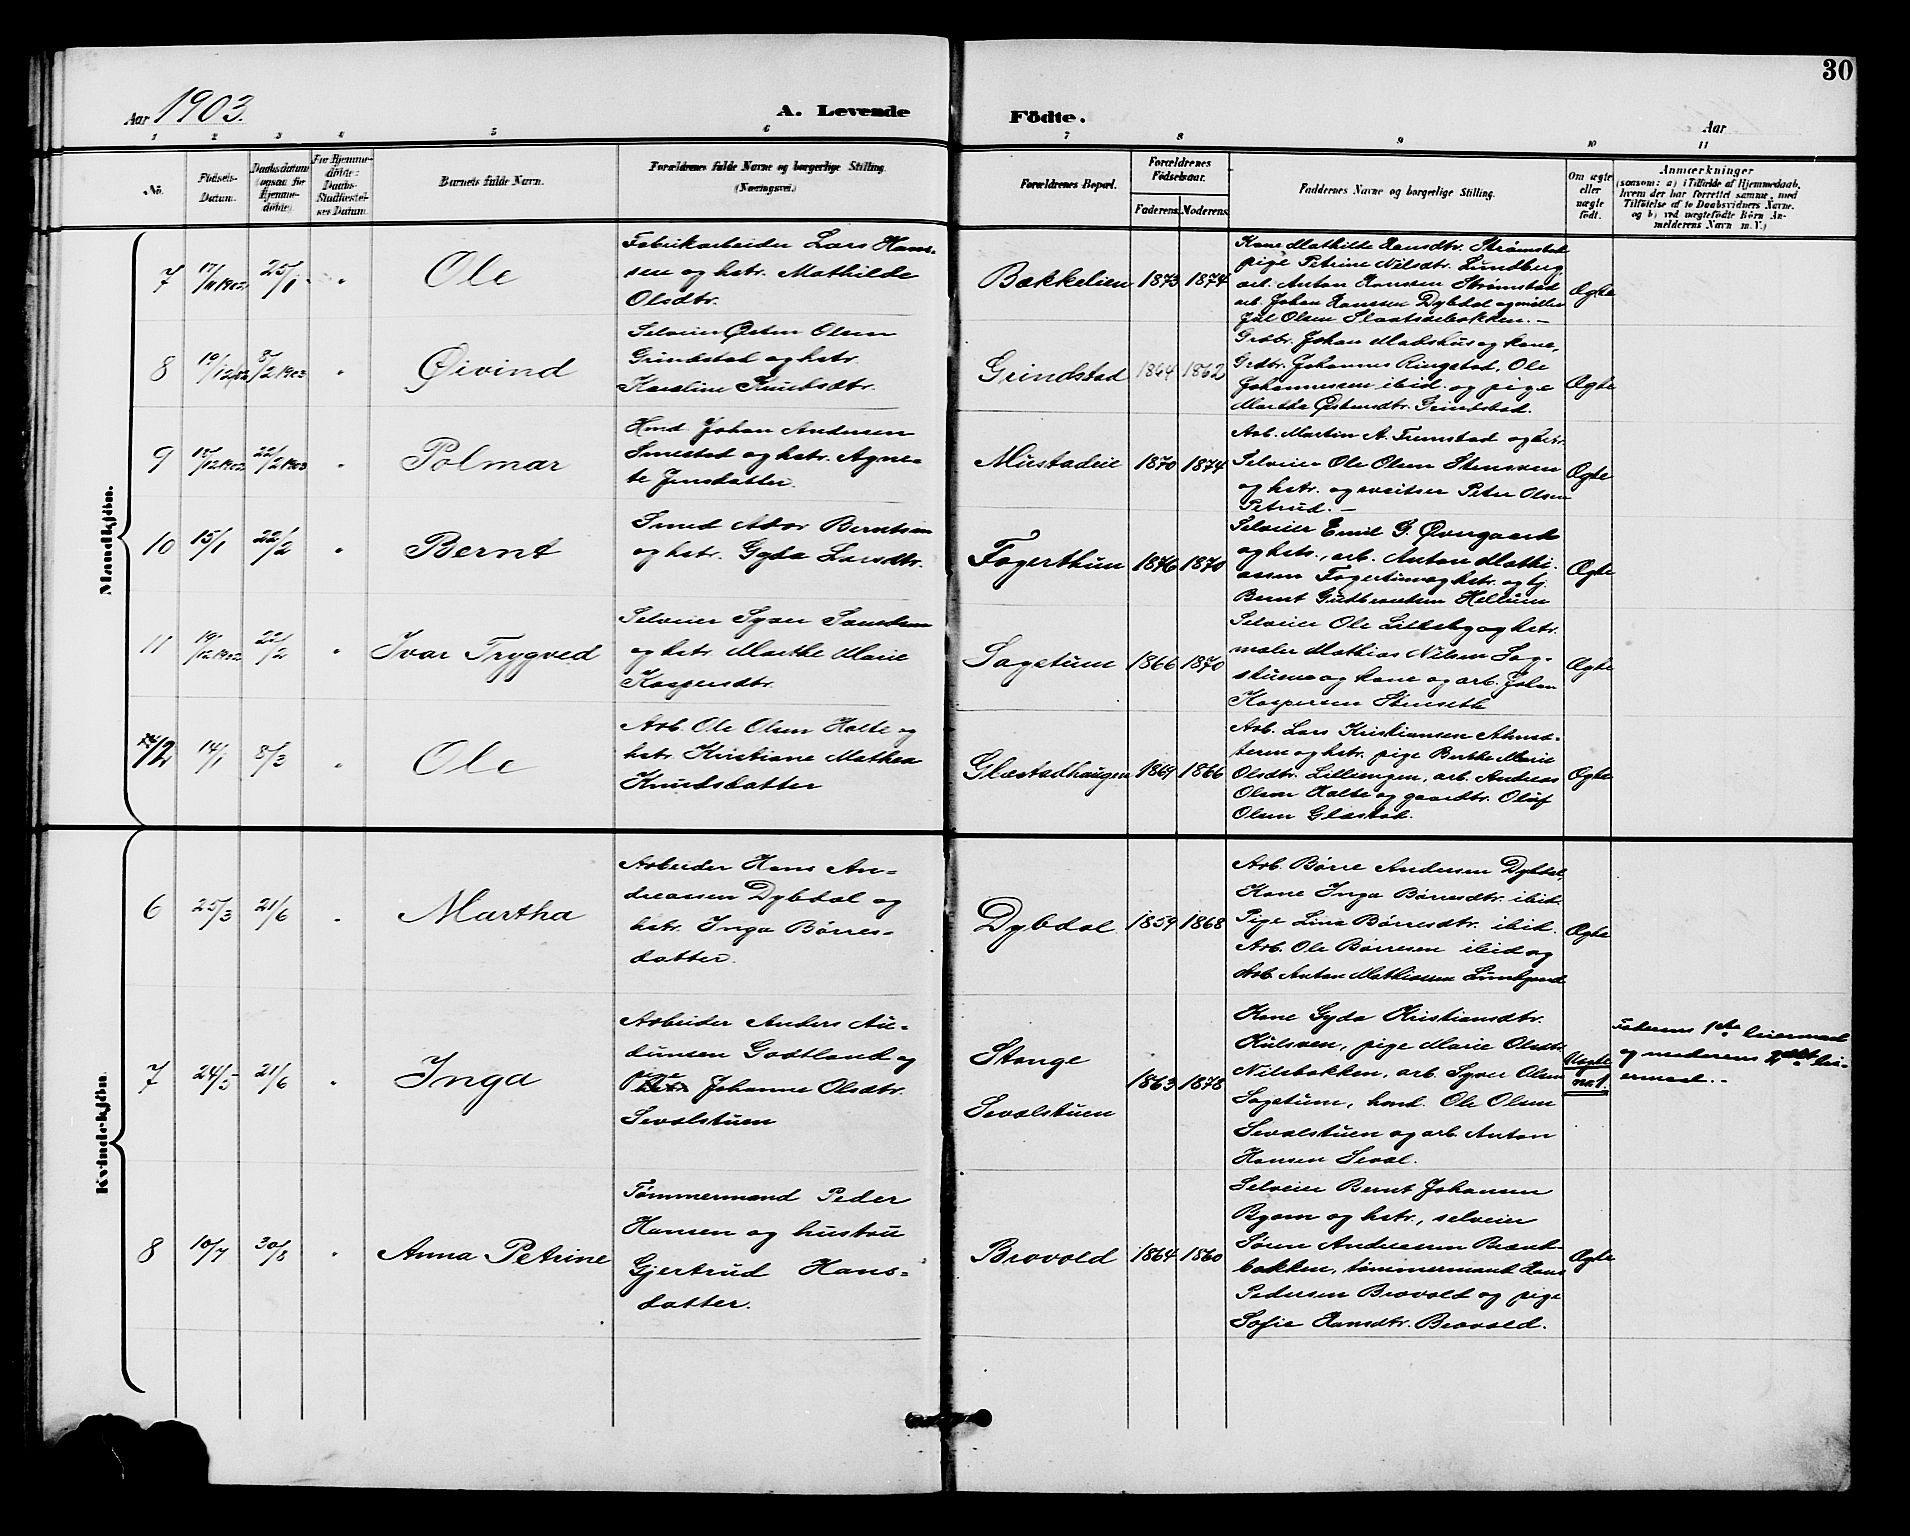 30
Aar 1903.
A. Levende
Födte.
Aar
1 2 3 4 5 6 7 8 9 10 11
No.
Födsels-
Datum.
Daabsdatum
(ogsaa for
Hjemme-
døbte).
For Hjemme-
døbte:
Daabs-
Stadfæstel-
ses Datum.
Barnets fulde Navn.
Forældrenes fulde Navne og borgerlige Stilling.
(Næringsvei.)
Forældrenes Bopæl.
Forældrenes
Fødselsaar.
Faderens. Moderens.
Faddernes Navne og borgerlige Stilling.
Om ægte
eller
uægte
født.
Anmærkninger
(saasom: a) i Tilfælde af Hjemmedaab,
hvem der har forrettet samme, med
Tilföielse af to Daabsvidners Navne,
og b) ved uægtefødte Börn An-
melderens Navn m. V.)
Mandkjön.
7 17/11 1902 25/1 "
Ole
Fabrikarbeider Lars Han-
sen og hstr. Mathilde
Olsdtr.
Bækkelien 1873 1874
Kone Mathilde Hansdtr. Strømstad
pige Petrine Nilsdtr. Lundberg,
arb. Anton Hanssen Strømstad
arb. Johan Hanssen Dybdal og møller
Jul Olsen Slaatsvebakken.-
Ægte
8 19/12 02 8/2 1903 "
Øivind
Selveier Østen Olsen
Grindstad og hstr.
Karoline Knudsdtr.
Grindstad 1864 1862
Grdbr. Johan Madshus og kone,
Grdbr. Johannes Ringstad, Ole
Johannessen ibid. og pige
Marthe Østensdtr. Grindstad.
Ægte
9 18/12 1902 22/2 1903 "
Polmar
Hmd. Johan Andersen
Smestad og hstr. Agne-
te Jensdatter.
Mustadeie 1870 1874
Arb. Martin A. Tumstad og hstr.
Selveier Ole Olsen Stensven
og hstr. og sveitser Peter Olsen
Petrud.-
Ægte
10 15/1 22/2 "
Bernt
Smed Berntsen
og hstr. Gyda Larsdtr.
Fagerthun 1876 1870
Selveier Emil G. Øvergaard
og hstr., arb. Anton Mathi-
assen Fagertun og hstr. og tj.
Bernt Gudbrandsen Hellum
Ægte
11 19/12 1902 22/2 "
Ivar Trygved
Selveier Syver
og hstr. Marthe Marie
Kaspersdtr.
Sagetum 1866 1870
Selveier Ole Lilleby og hstr.
maler Mathias Nilsen Sag-
stuen og kone og arb. Johan
Kaspersen Stenseth
Ægte
12 14/1 8/3 "
Ole
Arb. Ole Olsen Halte og
hstr. Kristiane Mathea
Knudsdatter
Glæstadhaugen 1869 1866
Arb. Lars Kristiansen
og hstr. pige Berthe Marie
Olsdtr. Lilliengen, arb. Andreas
Olsen Halte og gaardbr. Oluf
Olsen Glæstad.
Ægte
Kvindekjön.
6 25/3 21/6 "
Martha
Arbeider Hans An-
dreassen Dybdal og
hstr. Inga Børres-
datter.
Dybdal 1859 1868
Arb. Børre Andersen Dybdal,
Kone Inga Børresdtr. ibid.
Pige Lina Børresdtr. ibid.
Arb. Ole Børresen ibid og
Arb. Anton Mathiasen
Ægte
7 24/5 21/6 "
Inga
Arbeider Anders Au-
dunsen Godtland og
pige Johanne Olsdtr.
Sevalstuen
Stange
Sevalstuen
1863 1878
Kone Gyda Kristiansdtr.
Hulsven, pige Marie Olsdtr.
Nilsbakken, arb. Syver Olsen
Sagetum, hmd. Ole Olsen
Sevalstuen og arb. Anton
Hansen Seval.
Uægte
no 1.
Faderens 1ste leiermaal
og moderens lei-
ermaal.-
8 10/7 30/8 "
Anna Petrine
Tømmermand Peder
Hansen og hustru
Gjertrud Hans-
datter.
Brovold 1864 1860
Selveier Bernt Johansen
Bgom og hstr., selveier
Søren Andreassen Brænd-
bakken, tømmermand Hans
Pedersen Brovold og pige
Sofie Hansdtr. Brovold.
Ægte